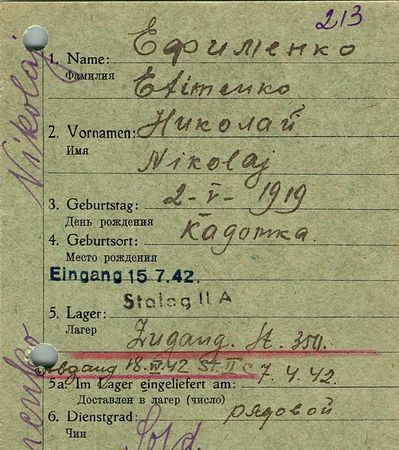 213
Nikolaj
1. Name: Ефименко
Фамилия
Efimenko
2. Vornamen: Николай
Имя
Nikolaj
3. Geburtstag: 2-V-1919
День рождения
4. Geburtsort: Кадомка.
Место рождения
Eingang 15 7.42.
Stalag II A
5. Lager:
Лагер
Zugang. St. 350.
Abgang 18.IV.42 St. II C
7.4.42.
5a. Im Lager eingeliefert am:
Доставлен в лагер (число)
6. Dienstgrad: рядовой
Чин
Sold.